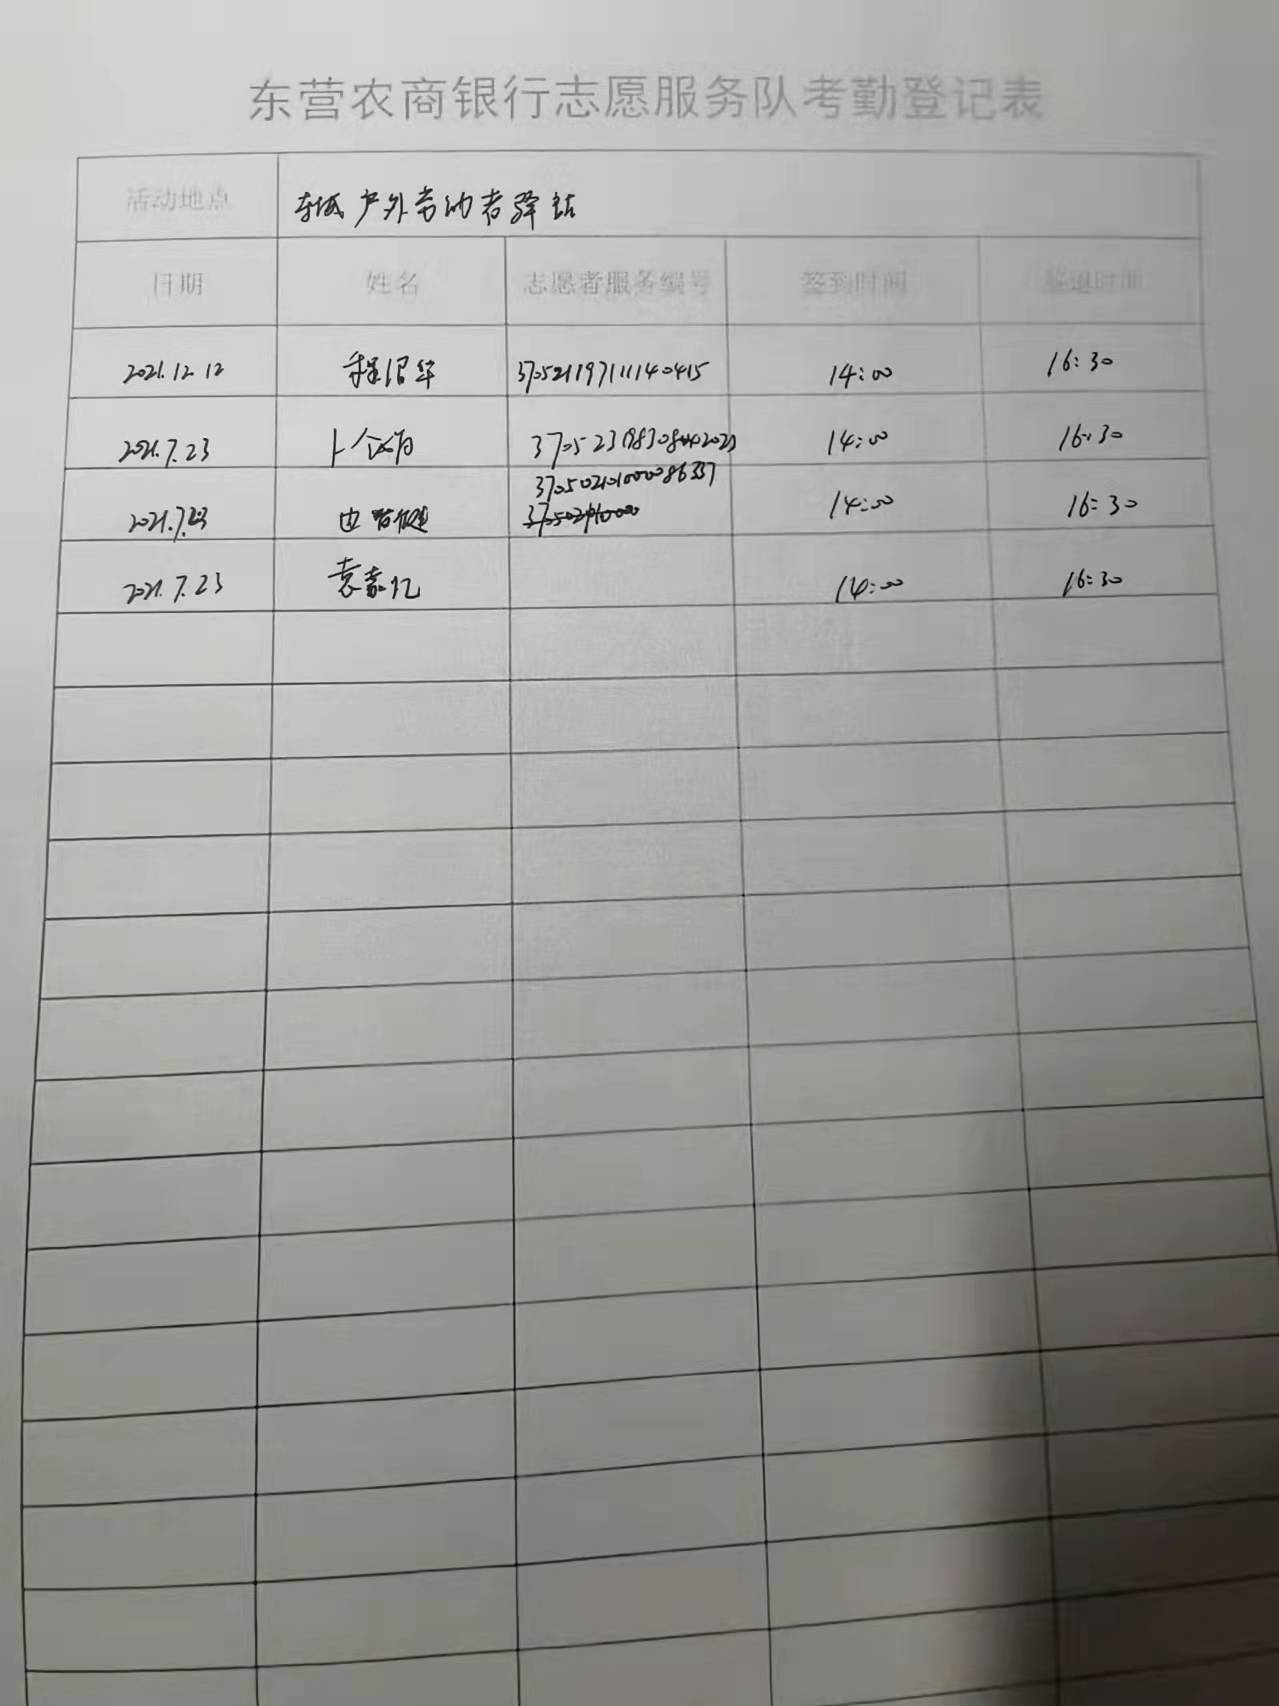 东营农商银行志愿服务队考勤登记表
活动地点 东城户外劳动者驿站
日期 姓名 志愿者服务编号 签到时间 签退时间
2021.12.12 370521197111140415 14:00 16:30
2021.7.23 14:00 16:30
2021.7.23 14:00 16:30
2021.7.23 袁嘉忆 14:00 16:30